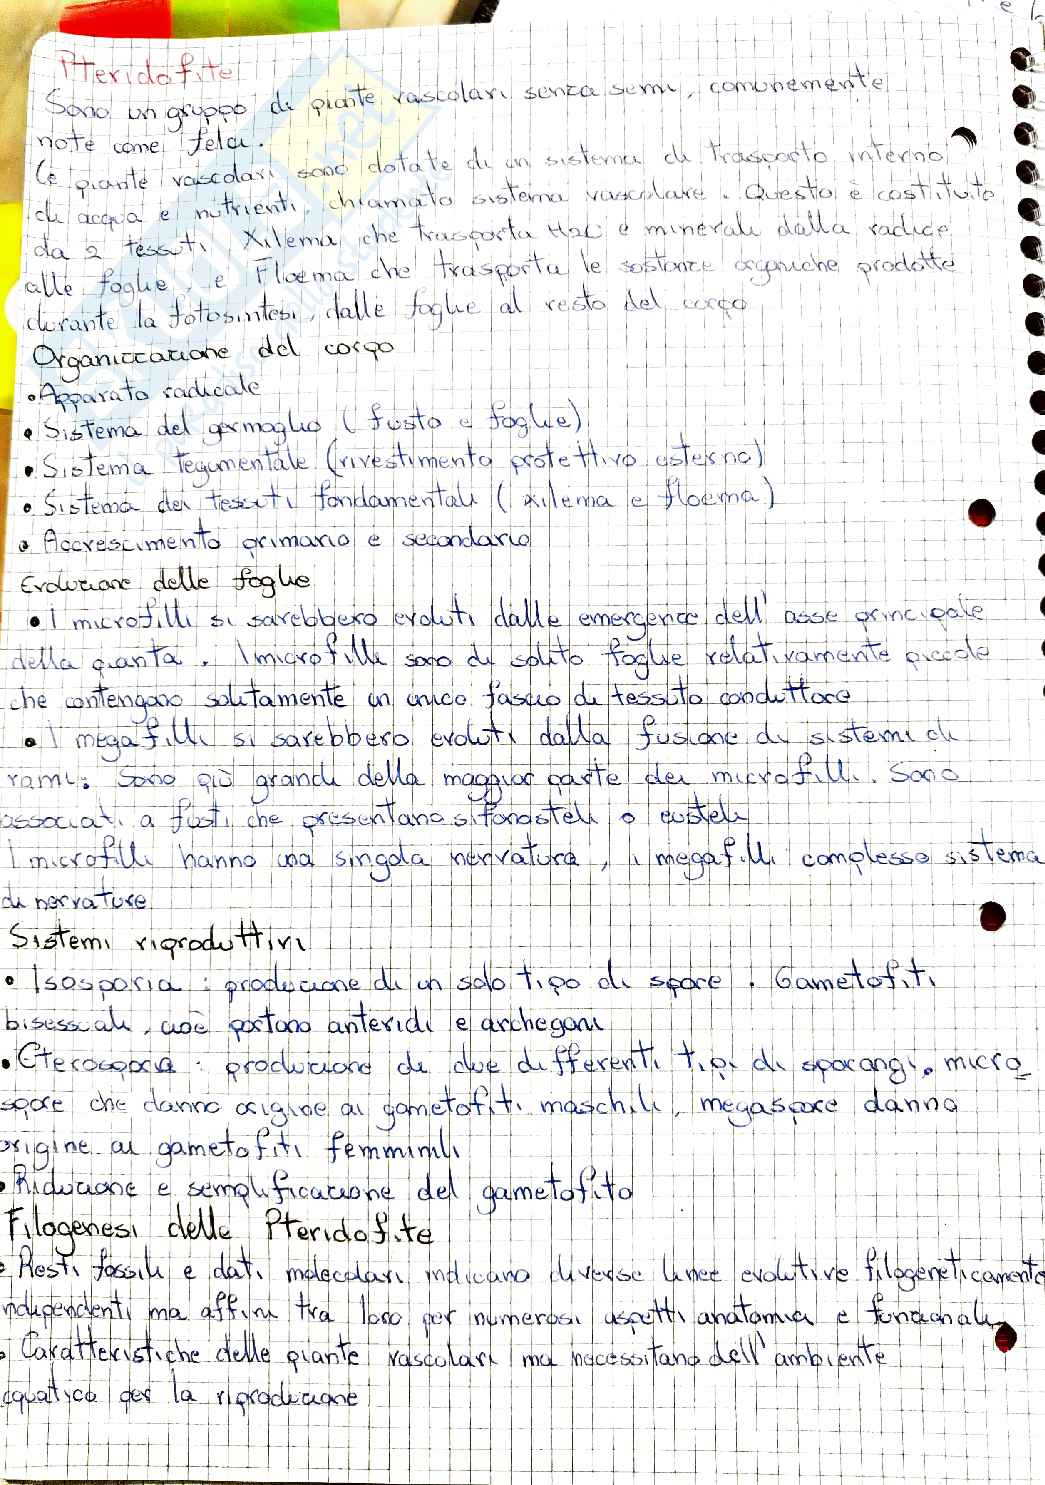 Pteridofite
Sono un gruppo di piante vascolari senza semi, comunemente
note come felci.
Le piante vascolari sono dotate di un sistema di trasporto interno
di acqua e nutrienti, chiamato sistema vascolare. Questo è costituito
da 2 tessuti Xilema, che trasporta H2O e minerali dalla radice
alle foglie, e Floema che trasporta le sostanze organiche prodotte
durante la fotosintesi, dalle foglie al resto del corpo
Organizzazione del corpo
• Apparato radicale
• Sistema del germoglio (fusto e foglie)
• Sistema Tegumentale (rivestimento protettivo esterno)
• Sistema dei tessuti fondamentali (xilema e floema)
• Accrescimento primario e secondario
Evoluzione delle foglie
• I microfilli si sarebbero evoluti dalle emergenze dell'asse principale
della pianta. I microfilli sono di solito foglie relativamente piccole
che contengono solitamente un unico fascio di tessuto conduttore
• I megafilli si sarebbero evoluti dalla fusione di sistemi di
rami. Sono più grandi della maggior parte dei microfilli. Sono
associati a fusti che presentano sifonostele o eustele
I microfilli hanno una singola nervatura, i megafilli complesso sistema
di nervature
Sistemi riproduttivi
• Isosporia: produzione di un solo tipo di spore. Gametofiti
bisessuali, cioè portano anteridi e archegoni
• Eterosporia: produzione di due differenti tipi di sporangi. micro
spore che danno origine ai gametofiti maschili, megaspore danno
origine ai gametofiti femminili
• Riduzione e semplificazione del gametofito
Filogenesi delle Pteridofite
• Resti fossili e dati molecolari indicano diverse linee evolutive filogeneticamente
indipendenti ma affini tra loro per numerosi aspetti anatomici e funzionali
• Caratteristiche delle piante vascolari ma necessitano dell'ambiente
acquatico per la riproduzione